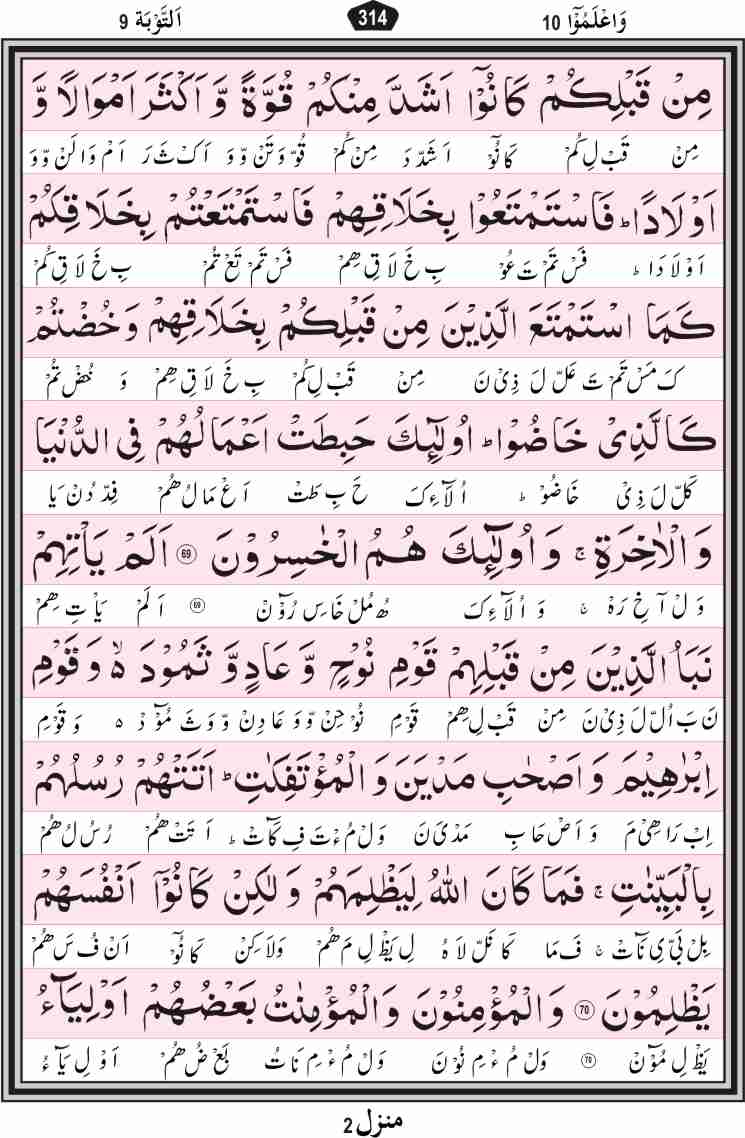 اَلتَّوْبَة 9
314
وَاعْلَمُوْۤا 10
مِنْ قَبْلِكُمْ كَانُوْۤا اَشَدَّ مِنْكُمْ قُوَّةً وَّ اَكْثَرَ اَمْوَالًا وَّ
مِنْ قَبْ لِ كُمْ كَا نُوْۤ اَ شَدّ دَ مِنْ كُمْ قُوّ وَ تَنْ وّ وَ اَكْ ثَ رَ اَمْ وَا لَنْ وّ وَ
اَوْلَادًا ؕ فَاسْتَمْتَعُوْا بِخَلَاقِهِمْ فَاسْتَمْتَعْتُمْ بِخَلَاقِكُمْ
اَوْ لَا دَا ؕ فَسْ تَمْ تَ عُوْ بِ خَ لَا قِ هِمْ فَسْ تَمْ تَعْ تُمْ بِ خَ لَا قِ كُمْ
كَمَا اسْتَمْتَعَ الَّذِيْنَ مِنْ قَبْلِكُمْ بِخَلَاقِهِمْ وَخُضْتُمْ
كَ مَسْ تَمْ تَ عَلّ لَ ذِيْ نَ مِنْ قَبْ لِ كُمْ بِ خَ لَا قِ هِمْ وَ خُضْ تُمْ
كَالَّذِيْ خَاضُوْا ؕ اُولٰٓئِكَ حَبِطَتْ اَعْمَالُهُمْ فِي الدُّنْيَا
كَلّ لَ ذِيْ خَا ضُوْ ؕ اُ لَآ ءِ كَ حَ بِ طَتْ اَعْ مَا لُ هُمْ فِدّ دُنْ يَا
وَ الْاٰخِرَةِ ۚ وَ اُولٰٓئِكَ هُمُ الْخٰسِرُوْنَ 69 اَلَمْ يَاْتِهِمْ
وَ لْ اٰ خِ رَهْ ۚ وَ اُ لَآ ءِ كَ هُ مُلْ خَا سِ رُوْٓ نْ 69 اَ لَمْ يَاْ تِ هِمْ
نَبَاُ الَّذِيْنَ مِنْ قَبْلِهِمْ قَوْمِ نُوْحٍ وَّ عَادٍ وَّ ثَمُوْدَ ۙ۬ وَ قَوْمِ
نَ بَ اُلّ لَ ذِيْ نَ مِنْ قَبْ لِ هِمْ قَوْمِ نُوْ حِنْ وّ وَ عَا دِنْ وّ وَ ثَ مُوْٓ دْ ۵ وَ قَوْمِ
اِبْرٰهِيْمَ وَ اَصْحٰبِ مَدْيَنَ وَ الْمُؤْتَفِكٰتِ ؕ اَتَتْهُمْ رُسُلُهُمْ
اِبْ رَا هِيْ مَ وَ اَصْ حَا بِ مَدْ يَ نَ وَلْ مُ ءْ تَ فِ كَآتْ ؕ اَ تَتْ هُمْ رُ سُ لُ هُمْ
بِالْبَيِّنٰتِ ۚ فَمَا كَانَ اللهُ لِيَظْلِمَهُمْ وَ لٰكِنْ كَانُوْۤا اَنْفُسَهُمْ
بِلْ بَيّ يِ نَآتْ ۚ فَ مَا كَا نَلّ لَا هُ لِ يَظْ لِ مَ هُمْ وَلَا كِنْ كَا نُوْٓ اَنْ فُ سَ هُمْ
يَظْلِمُوْنَ 70 وَالْمُؤْمِنُوْنَ وَالْمُؤْمِنٰتُ بَعْضُهُمْ اَوْلِيَآءُ
يَظْ لِ مُوْٓ نْ 70 وَلْ مُ ءْ مِ نُوْ نَ وَلْ مُ ءْ مِ نَا تُ بَعْ ضُ هُمْ اَوْ لِ يَآ ءُ
منزل 2